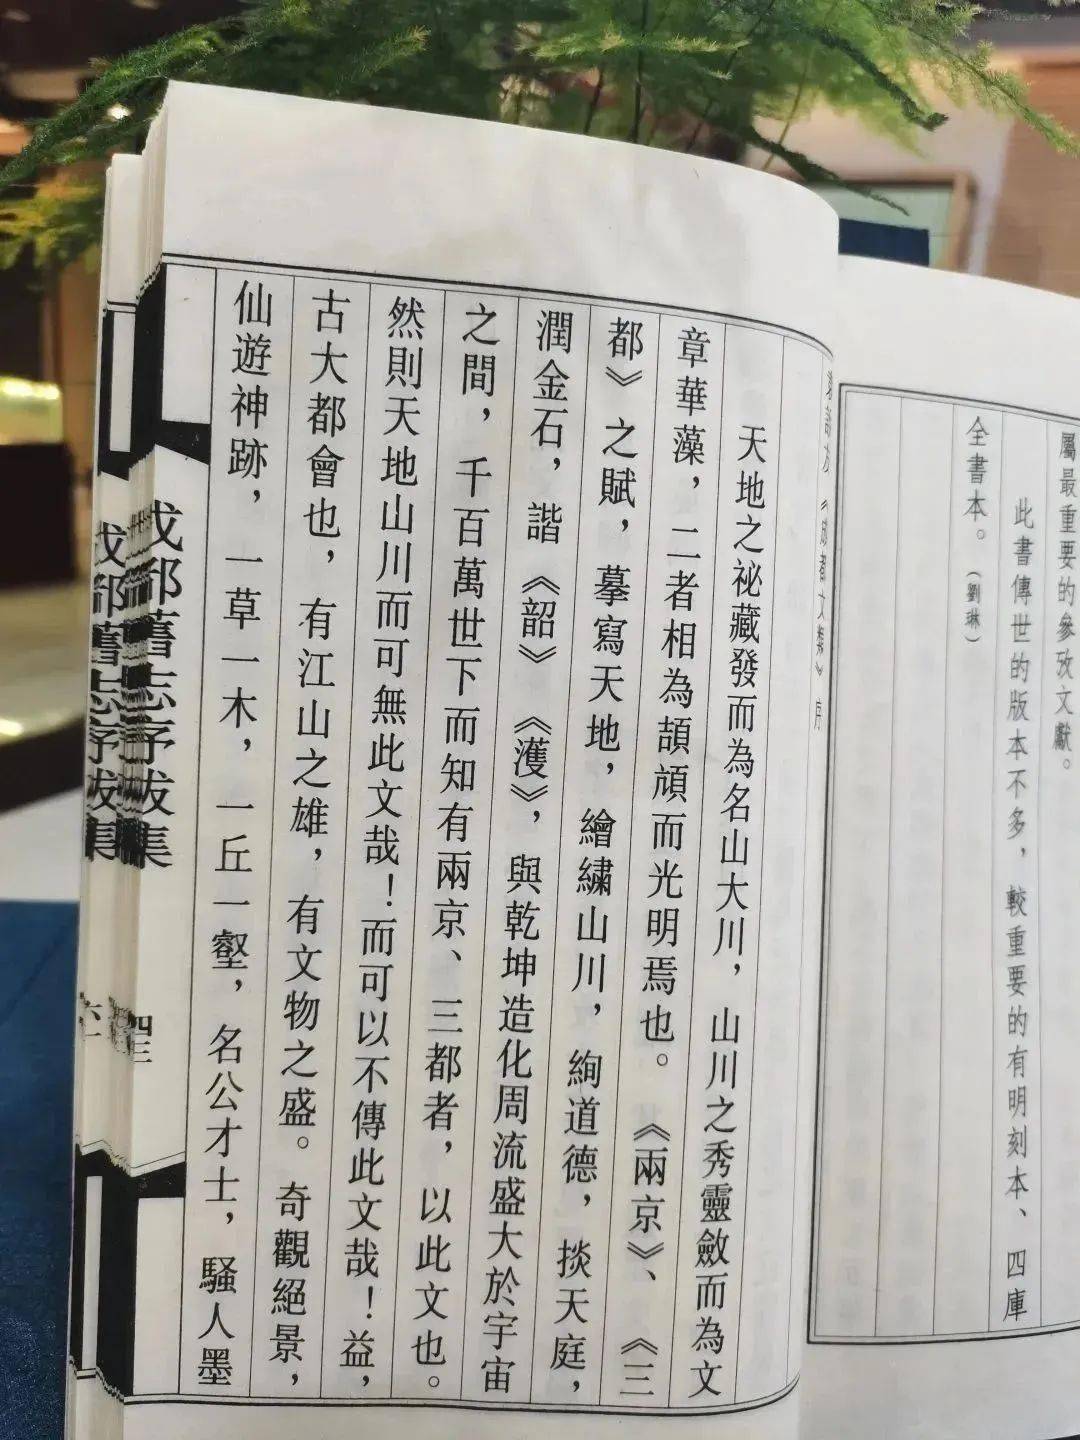 屬最重要的參攷文獻。
此書傳世的版本不多，較重要的有明刻本、四庫
全書本。（劉琳）
《成都文類》序
天地之祕藏發而為名山大川，山川之秀靈斂而為文
章華藻，二者相為頡頏而光明焉也。《兩京》、《三
都》之賦，摹寫天地，繪繡山川，絢道德，掞天庭，
潤金石，諧《韶》《濩》，與乾坤造化周流盛大於宇宙
之間，千百萬世下而知有兩京、三都者，以此文也。
然則天地山川而可無此文哉！而可以不傳此文哉！益，
古大都會也，有江山之雄，有文物之盛。奇觀絕景，
仙遊神跡，一草一木，一丘一壑，名公才士，騷人墨
成都舊志序跋集
四三
成都舊志序跋集